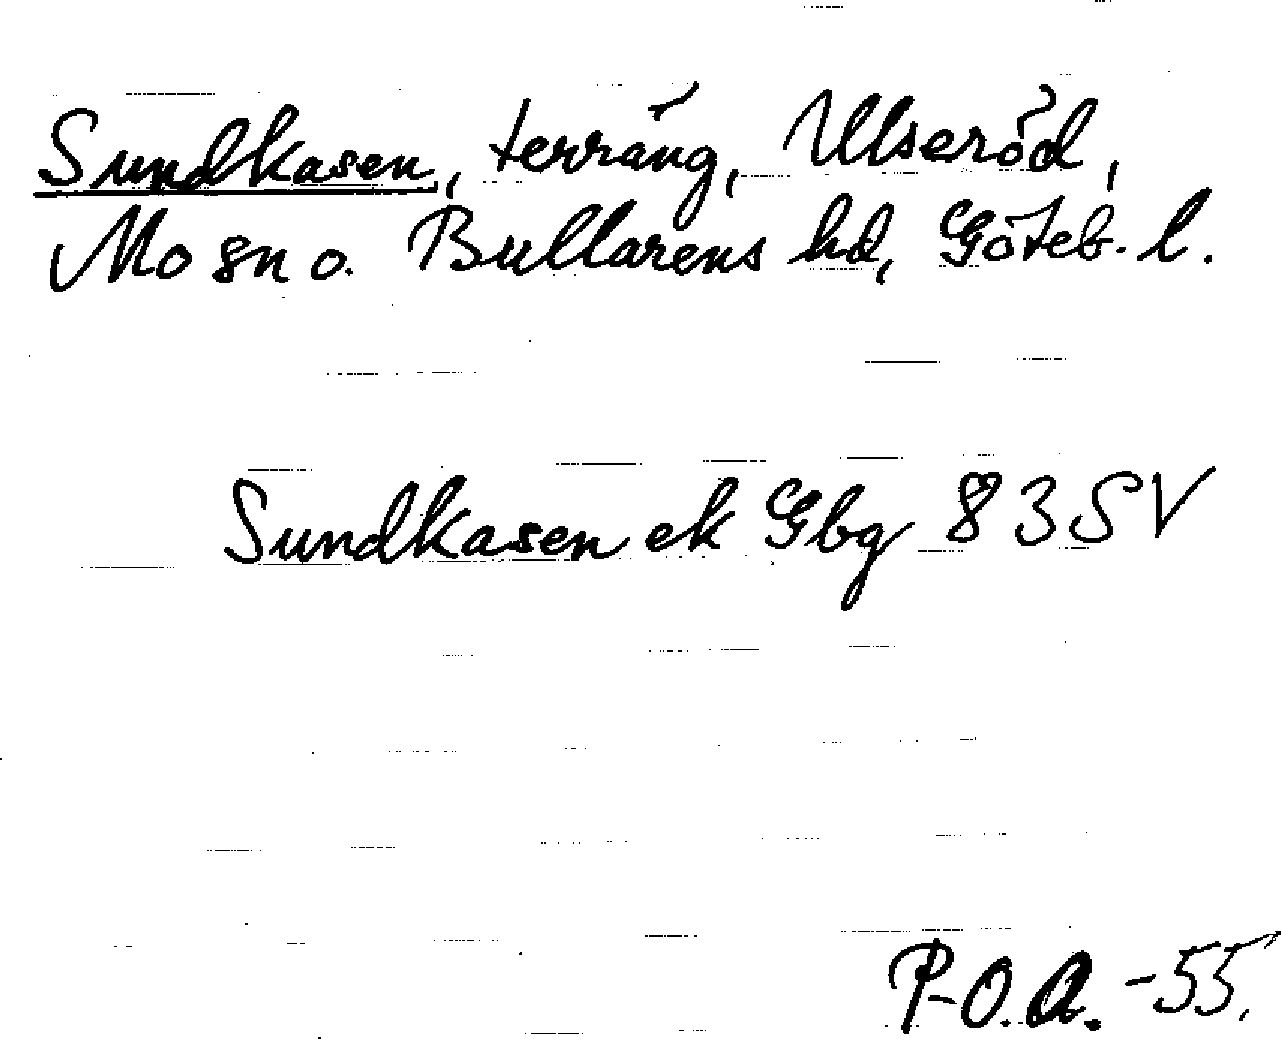 Sundkasen, terräng, Ulseröd,
Mo sn o. Bullarens hd, Göteb. l.
Sundkasen ek Gbg 83 SV
P-O.A. -55.